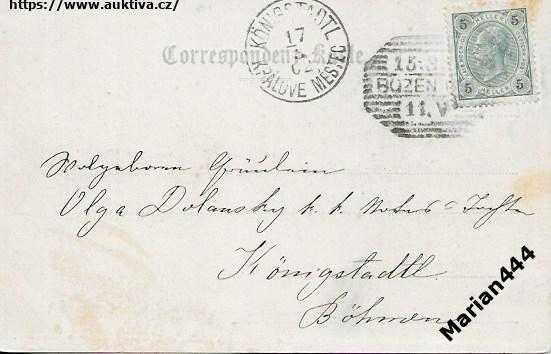 https://www.auktiva.cz/
Correspondenz-Karte
KÖNIGSTADTL
17
4
02
KRALOVE MESTEC
15.3
BOZEN
11.V
5 HELLER 5
5 HELLER 5
Wolgeboren Fräulein
Olga Dolansky k. k. Notars Tochter
Königstadtl
Böhmen
Marian444